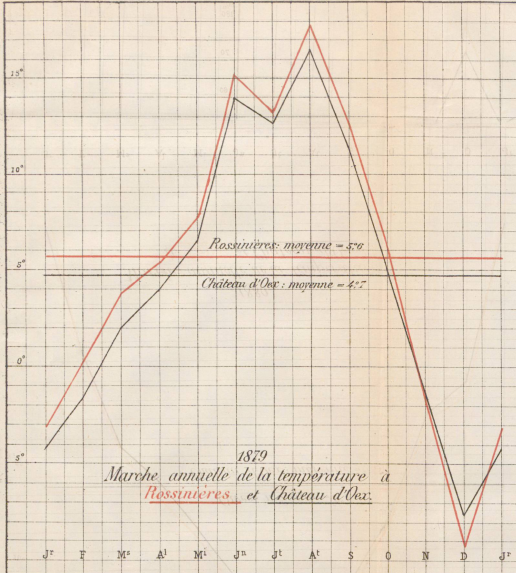 15°
10°
Rossinières: moyenne = 5°6
5°
Château d'Oex: moyenne = 4°7
0°
5°
1879
Marche annuelle de la température à
Rossinières et Château d'Oex.
Jr F Ms Al Mi Jn Jt At S O N D Jr